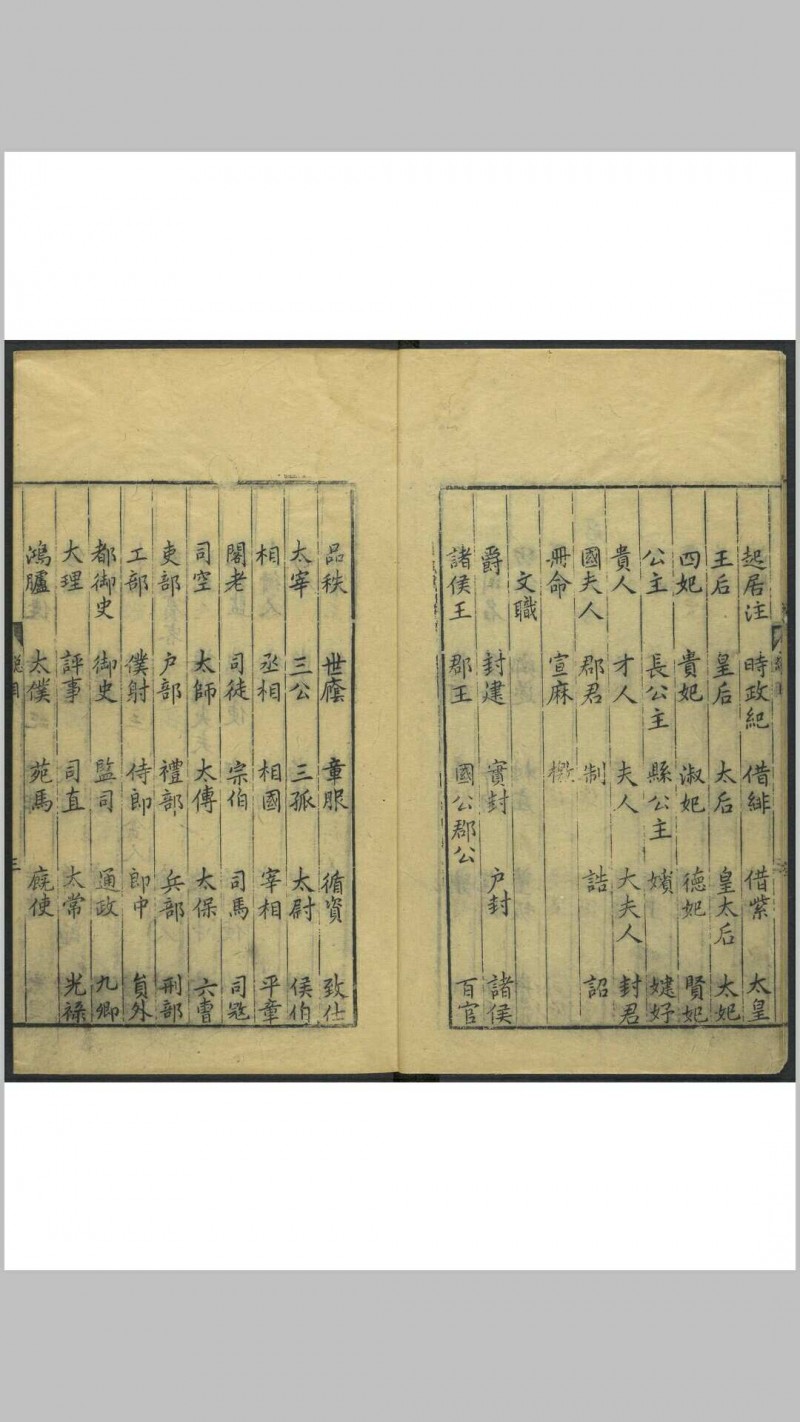 起居注 時政紀 借緋 借紫 太皇
王后 皇后 太后 皇太后 太妃
四妃 貴妃 淑妃 德妃 賢妃
公主 長公主 縣公主 嬪 婕妤
貴人 才人 夫人 大夫人 封君
國夫人 郡君 制 誥 詔
冊命 宣麻 檄
文職
爵 封建 實封 戶封 諸侯
諸侯王 郡王 國公郡公 百官
品秩 世廕 章服 循資 致仕
太宰 三公 三孤 太尉 侯伯
相 丞相 相國 宰相 平章
閣老 司徒 宗伯 司馬 司寇
司空 太師 太傅 太保 六曹
吏部 戶部 禮部 兵部 刑部
工部 僕射 侍郎 郎中 員外
都御史 御史 監司 通政 九卿
大理 評事 司直 太常 光祿
鴻臚 太僕 苑馬 廐使
三